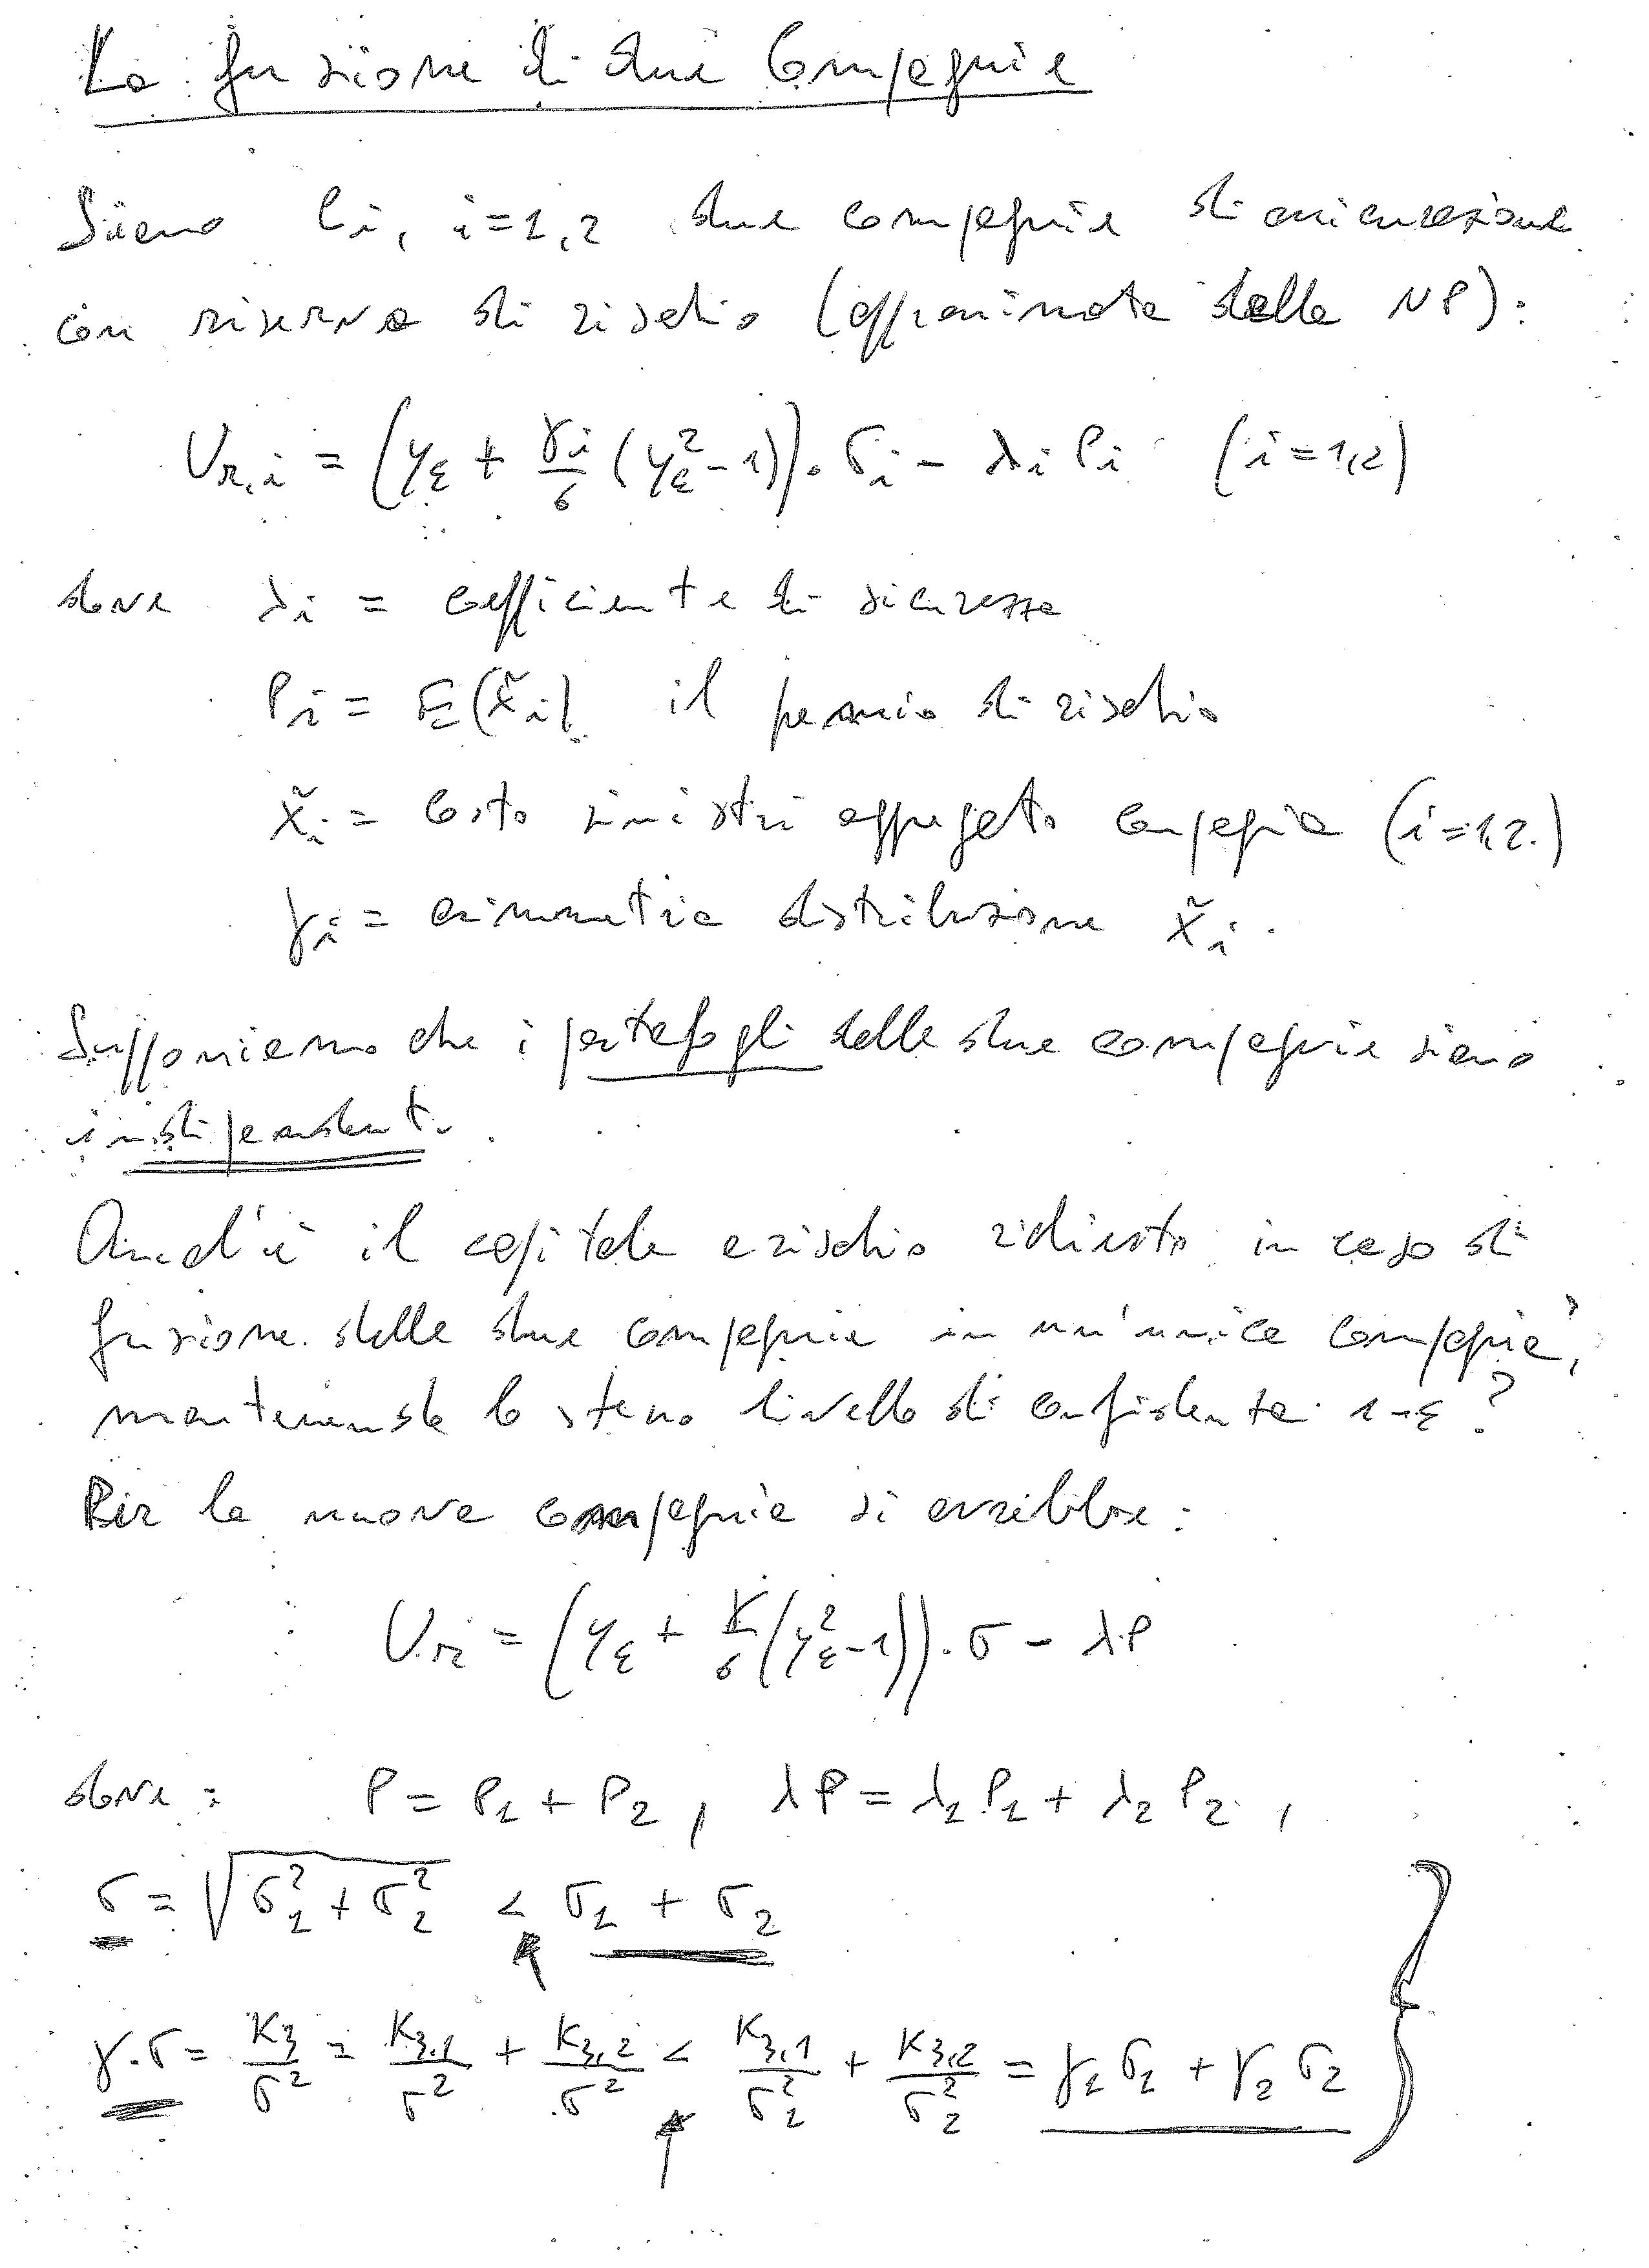 La fusione di due Compagnie
Siano Ci, i=1,2 due compagnie di assicurazione
con riserva di rischio (approssimata dalla NP):
U_{r,i} = (y_ε + γ_i/6 (y_ε² - 1)) · σ_i - λ_i P_i (i=1,2)
dove λ_i = coefficiente di sicurezza
P_i = E(x̃_i) il premio di rischio
x̃_i = costo sinistri aggregato compagnia (i=1,2.)
γ_i = asimmetria distribuzione x̃_i.
Supponiamo che i portafogli delle due compagnie siano
indipendenti.
Qual'è il capitale a rischio richiesto in caso di
fusione delle due compagnie in un'unica compagnia,
mantenendo lo stesso livello di confidenza 1-ε?
Per la nuova compagnia si avrebbe:
U_r = (y_ε + γ/6 (y_ε² - 1)) · σ - λP
dove: P = P_1 + P_2, λP = λ_1 P_1 + λ_2 P_2,
σ = √(σ_1² + σ_2²) < σ_1 + σ_2
γ·σ = K_3/σ² = K_{3,1}/σ² + K_{3,2}/σ² < K_{3,1}/σ_1² + K_{3,2}/σ_2² = γ_1 σ_1 + γ_2 σ_2